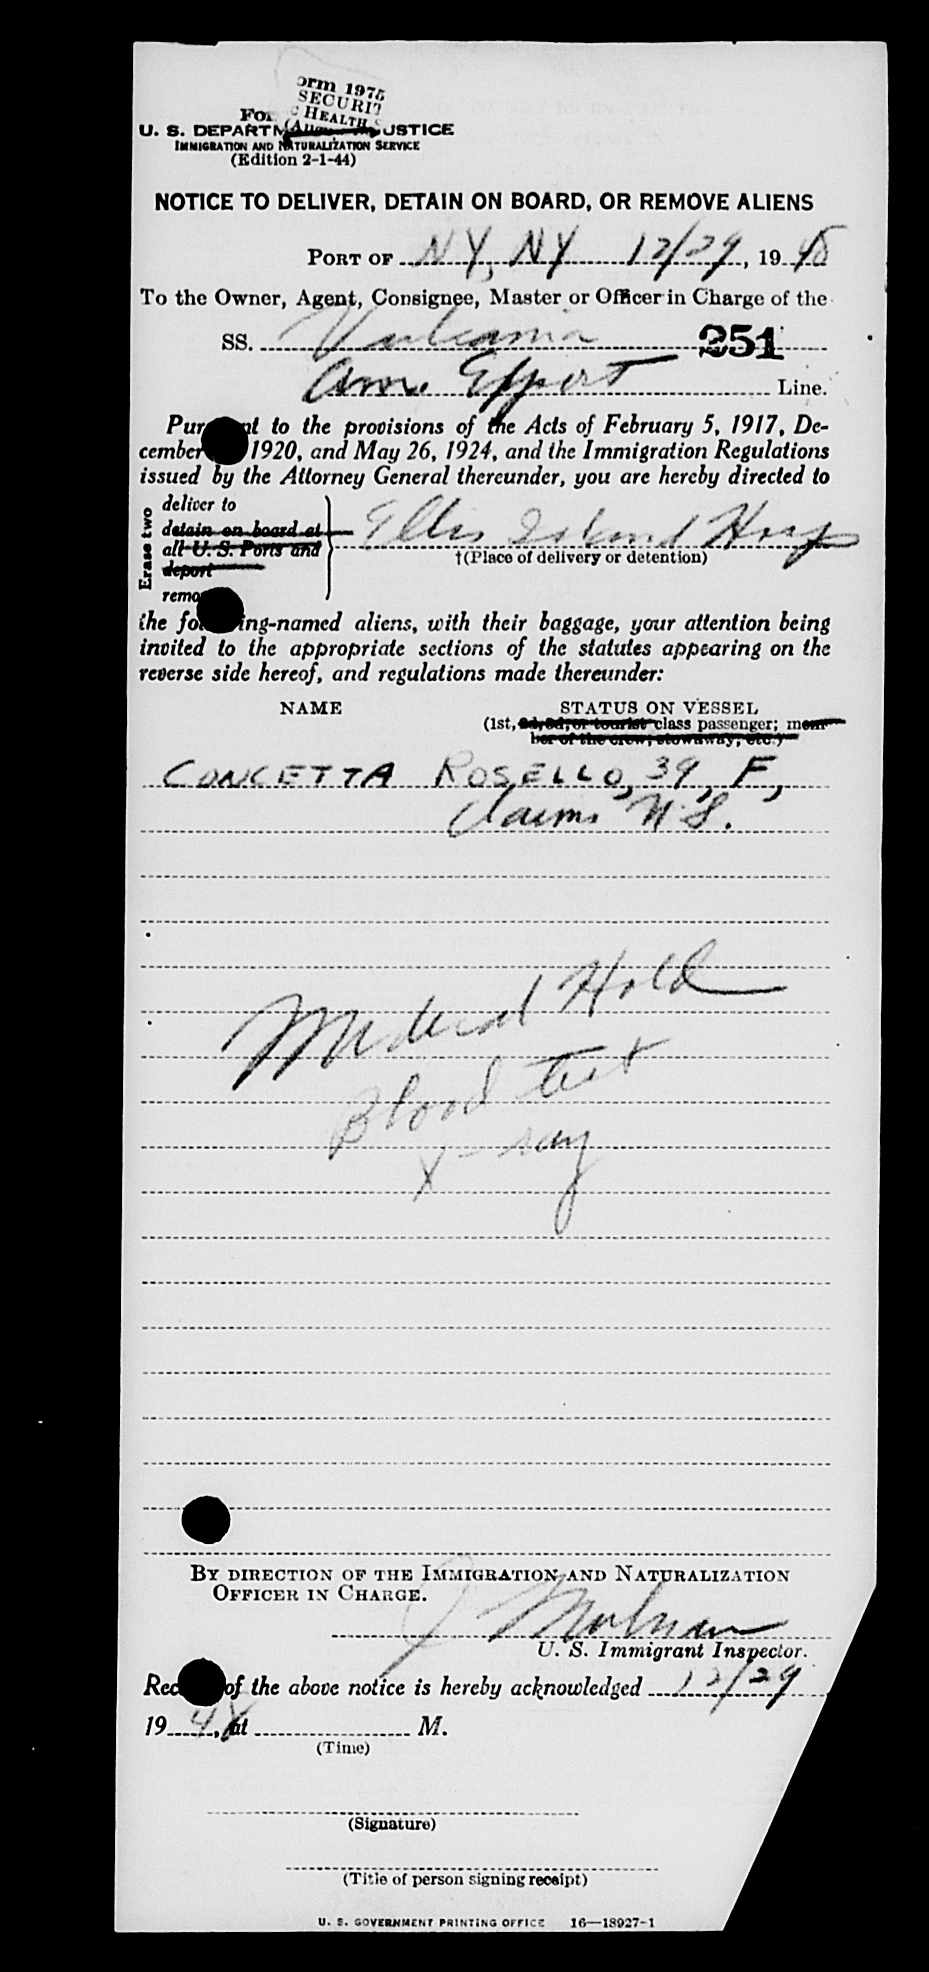 orm 1975
SECURIT
C HEALTH S
U. S. DEPARTM USTICE
IMMIGRATION AND NATURALIZATION SERVICE
(Edition 2-1-44)
NOTICE TO DELIVER, DETAIN ON BOARD, OR REMOVE ALIENS
PORT OF N Y, N Y 12/29, 1948
To the Owner, Agent, Consignee, Master or Officer in Charge of the
SS. Vulcania 251
Am. Export Line.
Pur nt to the provisions of the Acts of February 5, 1917, De-
cember 1920, and May 26, 1924, and the Immigration Regulations
issued by the Attorney General thereunder, you are hereby directed to
Erase two
deliver to
detain on board at
all U. S. Ports and
deport
remo
Ellis Island Hosp
†(Place of delivery or detention)
the fol ing-named aliens, with their baggage, your attention being
invited to the appropriate sections of the statutes appearing on the
reverse side hereof, and regulations made thereunder:
NAME STATUS ON VESSEL
(1st, 2d, 3d, or tourist class passenger; mem-
ber of the crew, stowaway, etc.)
CONCETTA ROSELLO, 39, F,
Claims
Medical Hold
Blood test
X-ray
BY DIRECTION OF THE IMMIGRATION AND NATURALIZATION
OFFICER IN CHARGE.
U. S. Immigrant Inspector.
Rec of the above notice is hereby acknowledged 12/29
1948, at M.
(Time)
(Signature)
(Title of person signing receipt)
U. S. GOVERNMENT PRINTING OFFICE 16—18927-1